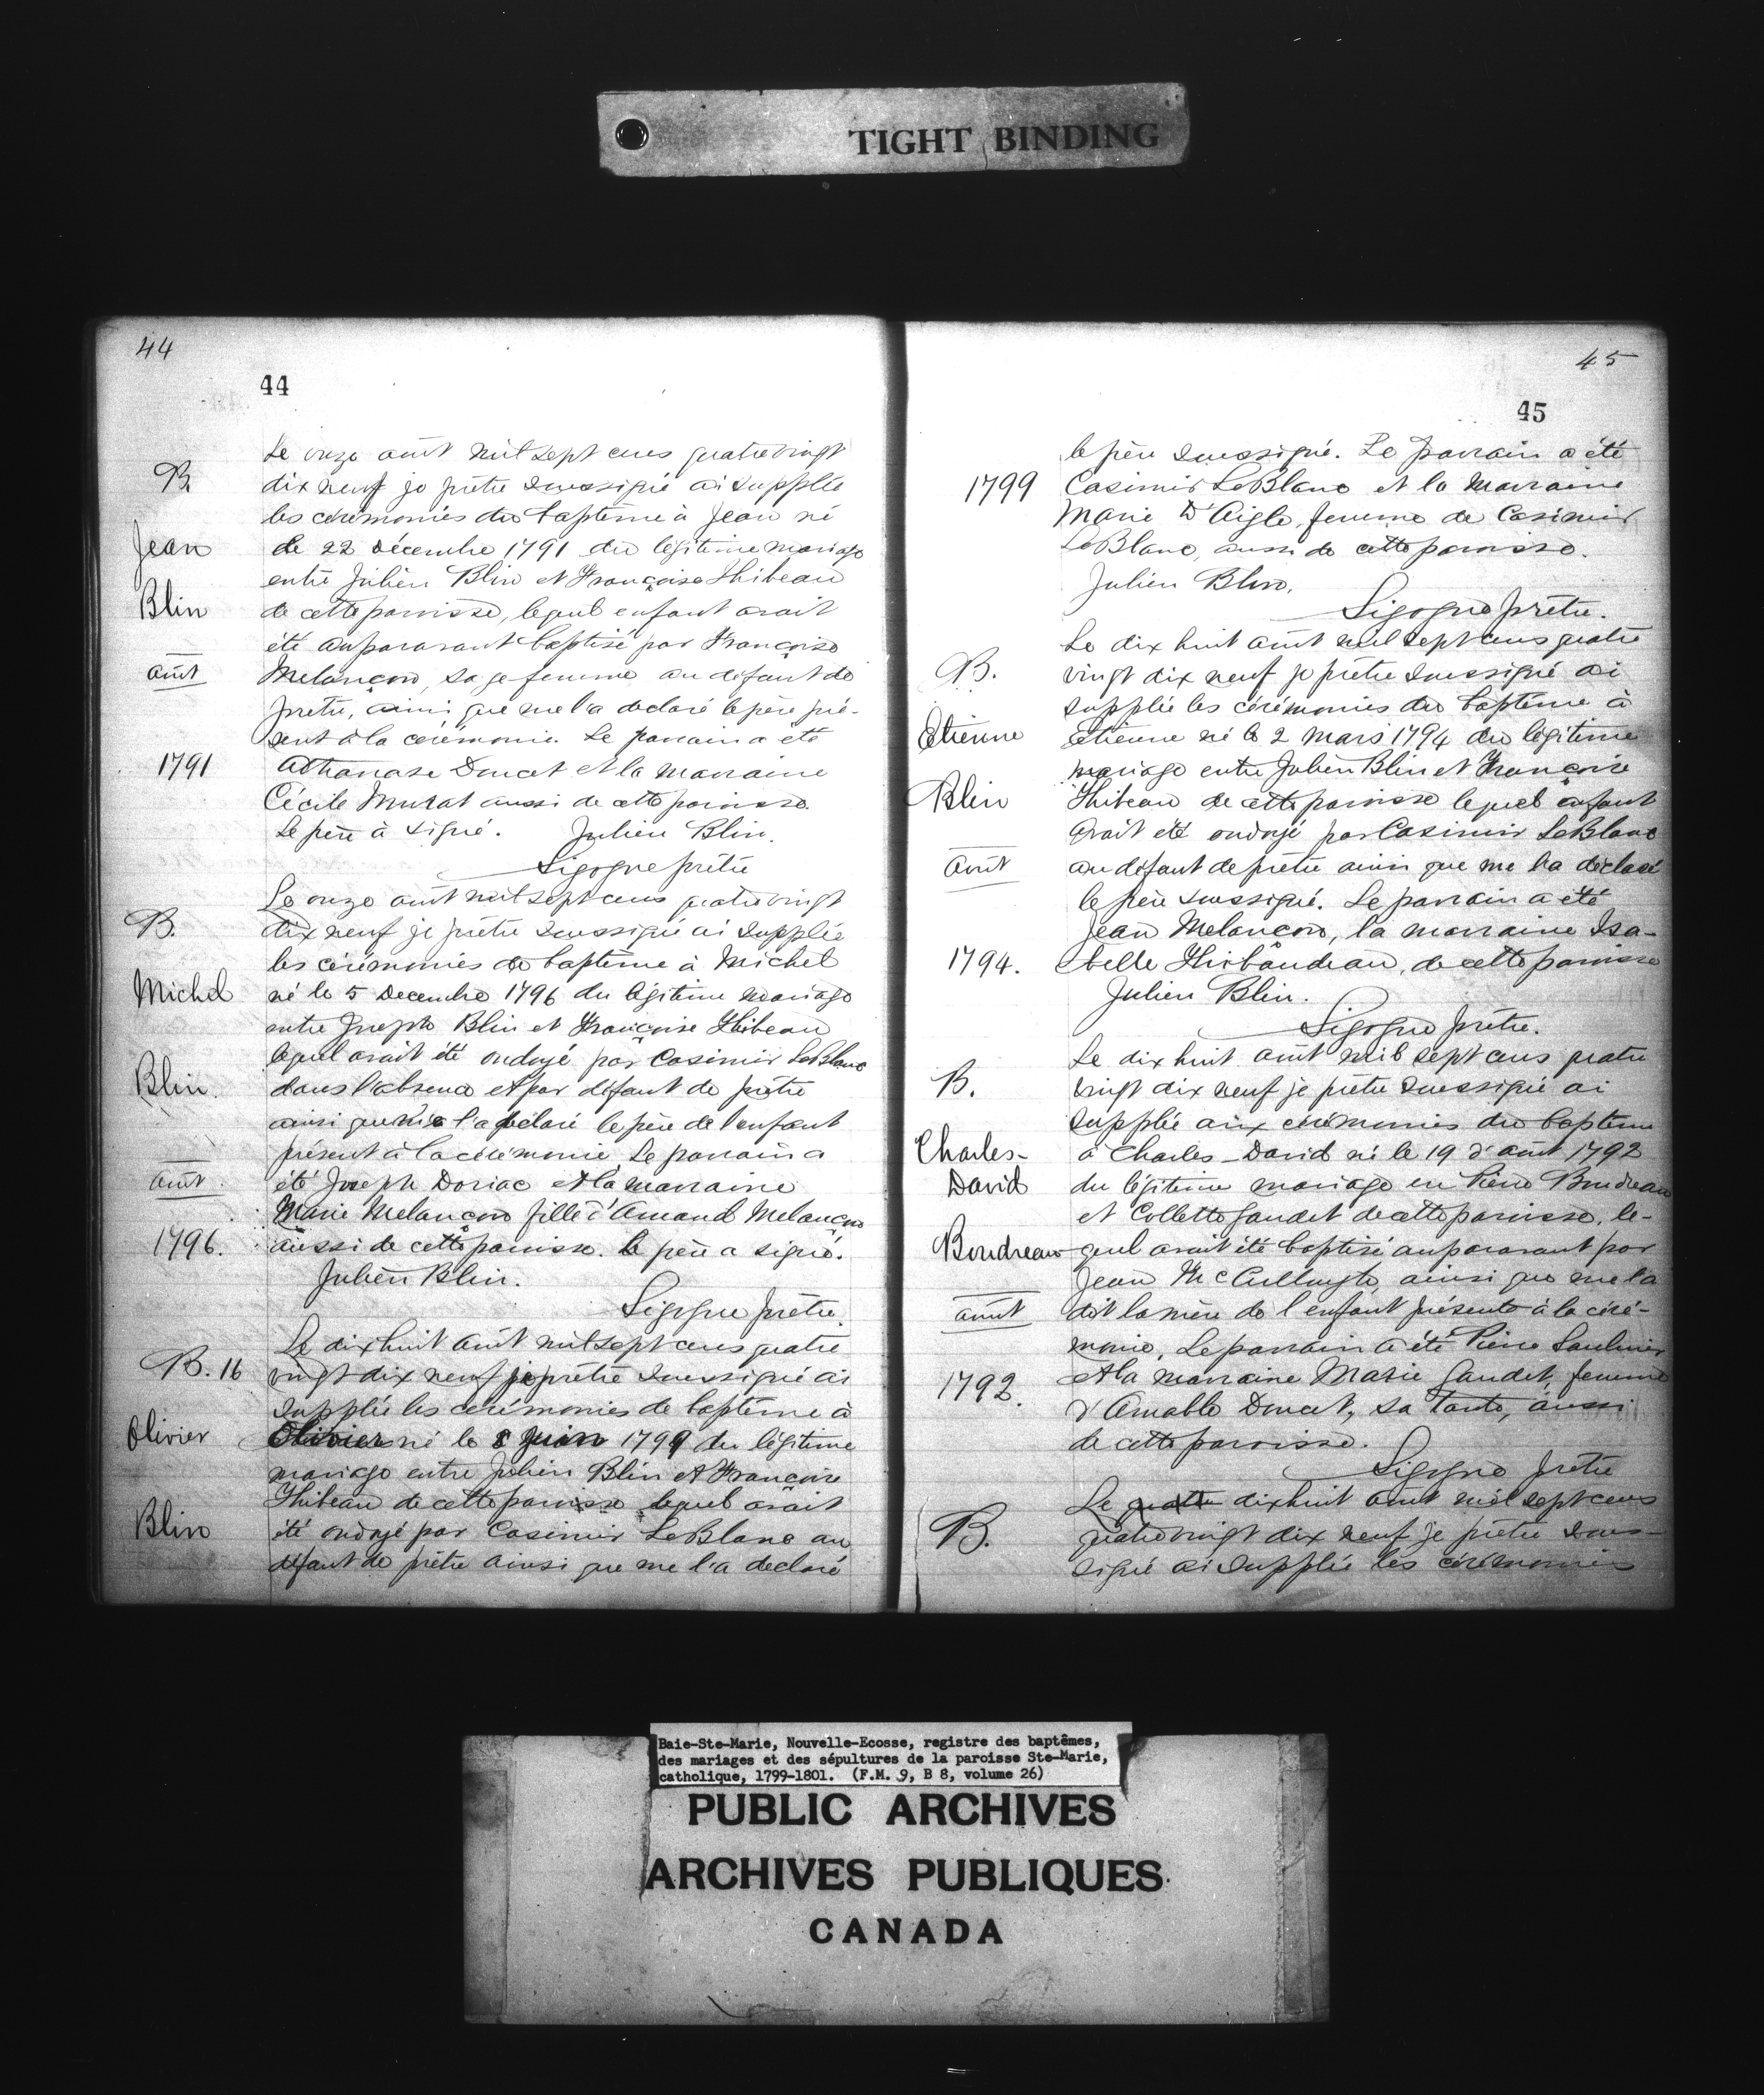 TIGHT BINDING
44
44
Le onze août mil sept cens quatre vingt
B.
dix neuf je prêtre soussigné ai supplée
les cérémonies du baptême à Jean né
Jean
le 22 Décembre 1791 du légitime mariage
entre Julien Blin et Françoise Thibeau
Blin
de cette paroisse, lequel enfant avait
été auparavant baptisé par Françoise
août
Melançon, sage femme au défaut de
prêtre, ainsi que me l'a declaré le père pré-
sent à la cérémonie. Le parrain a été
1791
Athanase Doucet et la marraine
Cécile Murat aussi de cette paroisse.
Le père à signé. Julien Blin.
Sigogne prêtre
Le onze août mil sept cens quatre vingt
B.
dix neuf je prêtre soussigné ai supplée
les cérémonies de baptême à Michel
Michel
né le 5 Decembre 1796 du légitime mariage
entre Joseph Blin et Françoise Thibeau
lequel avait été ondoyé par Casimir LeBlanc
Blin.
dans l'absence et par défaut de prêtre
ainsi que me l'a déclaré le père de l'enfant
présent à la cérémonie Le parrain a
août.
été Joseph Doriac et la marraine
Marie Melançon fille d'Amand Melançon
1796.
aussi de cette paroisse. le père a signé.
Julien Blin.
Sigogne prêtre.
Le dix huit août mil sept cens quatre
B. 16
vingt dix neuf je prêtre soussigné ai
supplée les cérémonies de baptême à
Olivier
Olivier né le 8 Juin 1799 du légitime
mariage entre Julien Blin et Françoise
Thibeau de cette paroisse lequel avait
Blin
été ondoyé par Casimir LeBlanc au
défaut de prêtre ainsi que me l'a declaré
45
45
le père soussigné. Le parrain a été
1799
Casimir LeBlanc et la marraine
Marie D'Aigle, femme de Casimir
LeBlanc, aussi de cette paroisse.
Julien Blin.
Sigogne prêtre.
Le dix huit août mil sept cens quatre
B.
vingt dix neuf je prêtre soussigné ai
supplée les cérémonies du baptême à
Etienne
Etienne né le 2 mars 1794 du légitime
mariage entre Julien Blin et Françoise
Blin
Thibeau de cette paroisse lequel enfant
avait été ondoyé par Casimir LeBlanc
août
au défaut de prêtre ainsi que me l'a déclaré
le père soussigné. Le parrain a été
Jean Melançon, la marraine Isa-
1794.
belle Thibaudeau, de cette paroisse
Julien Blin.
Sigogne prêtre.
Le dix huit août mil sept cens quatre
B.
vingt dix neuf je prêtre soussigné ai
supplée aux cérémonies du baptême
Charles-
à Charles-David né le 19 d'août 1792
David
du légitime mariage en Pierre Boudreau
et Collette Gaudet de cette paroisse, le-
Boudreau
quel avait été baptisé auparavant par
Jean McCullough, ainsi que me l'a
août
dit la mère de l'enfant présente à la céré-
monie, Le parrain a été Pierre Saulnier
1792.
et la marraine Marie Gaudet, femme
d'Amable Doucet, sa tante, aussi
de cette paroisse.
Sigogne prêtre
Le quatre dix huit août mil sept cens
B.
quatre vingt dix neuf je prêtre sous-
signé ai supplée les cérémonies
Baie-Ste-Marie, Nouvelle-Ecosse, registre des baptêmes,
des mariages et des sépultures de la paroisse Ste-Marie,
catholique, 1799-1801. (F.M. 9, B 8, volume 26)
PUBLIC ARCHIVES
ARCHIVES PUBLIQUES
CANADA